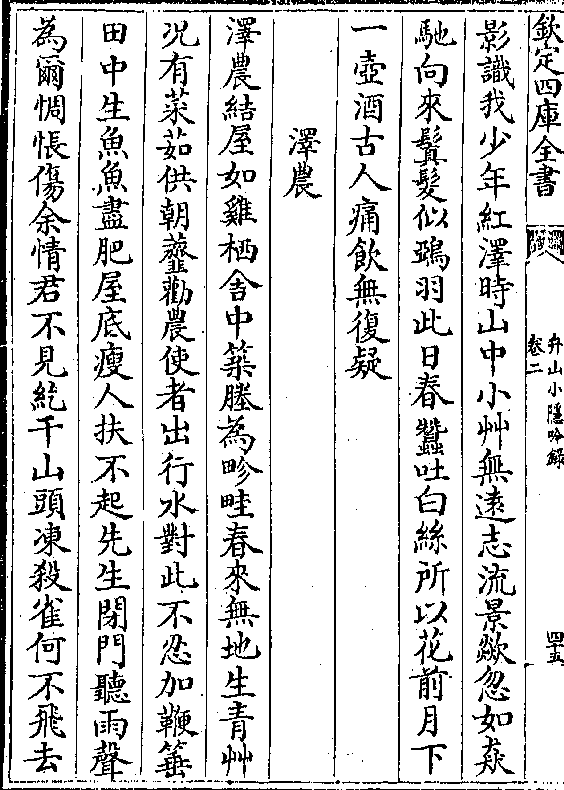 欽定四庫全書
弁山小隱吟録
卷二
四十五
影識我少年紅澤時山中小艸無逺志流景歘忽如猋
馳向來鬒髮似鵶羽此日春蠶吐白絲所以花前月下
一壺酒古人痛飲無復疑
澤農
澤農結屋如雞栖舍中築塍為畛畦春來無地生青艸
况有菜茹供朝虀勸農使者出行水對此不忍加鞭箠
田中生魚魚盡肥屋底瘦人扶不起先生閉門聽雨聲
為爾惆悵傷余情君不見紇干山頭凍殺雀何不飛去